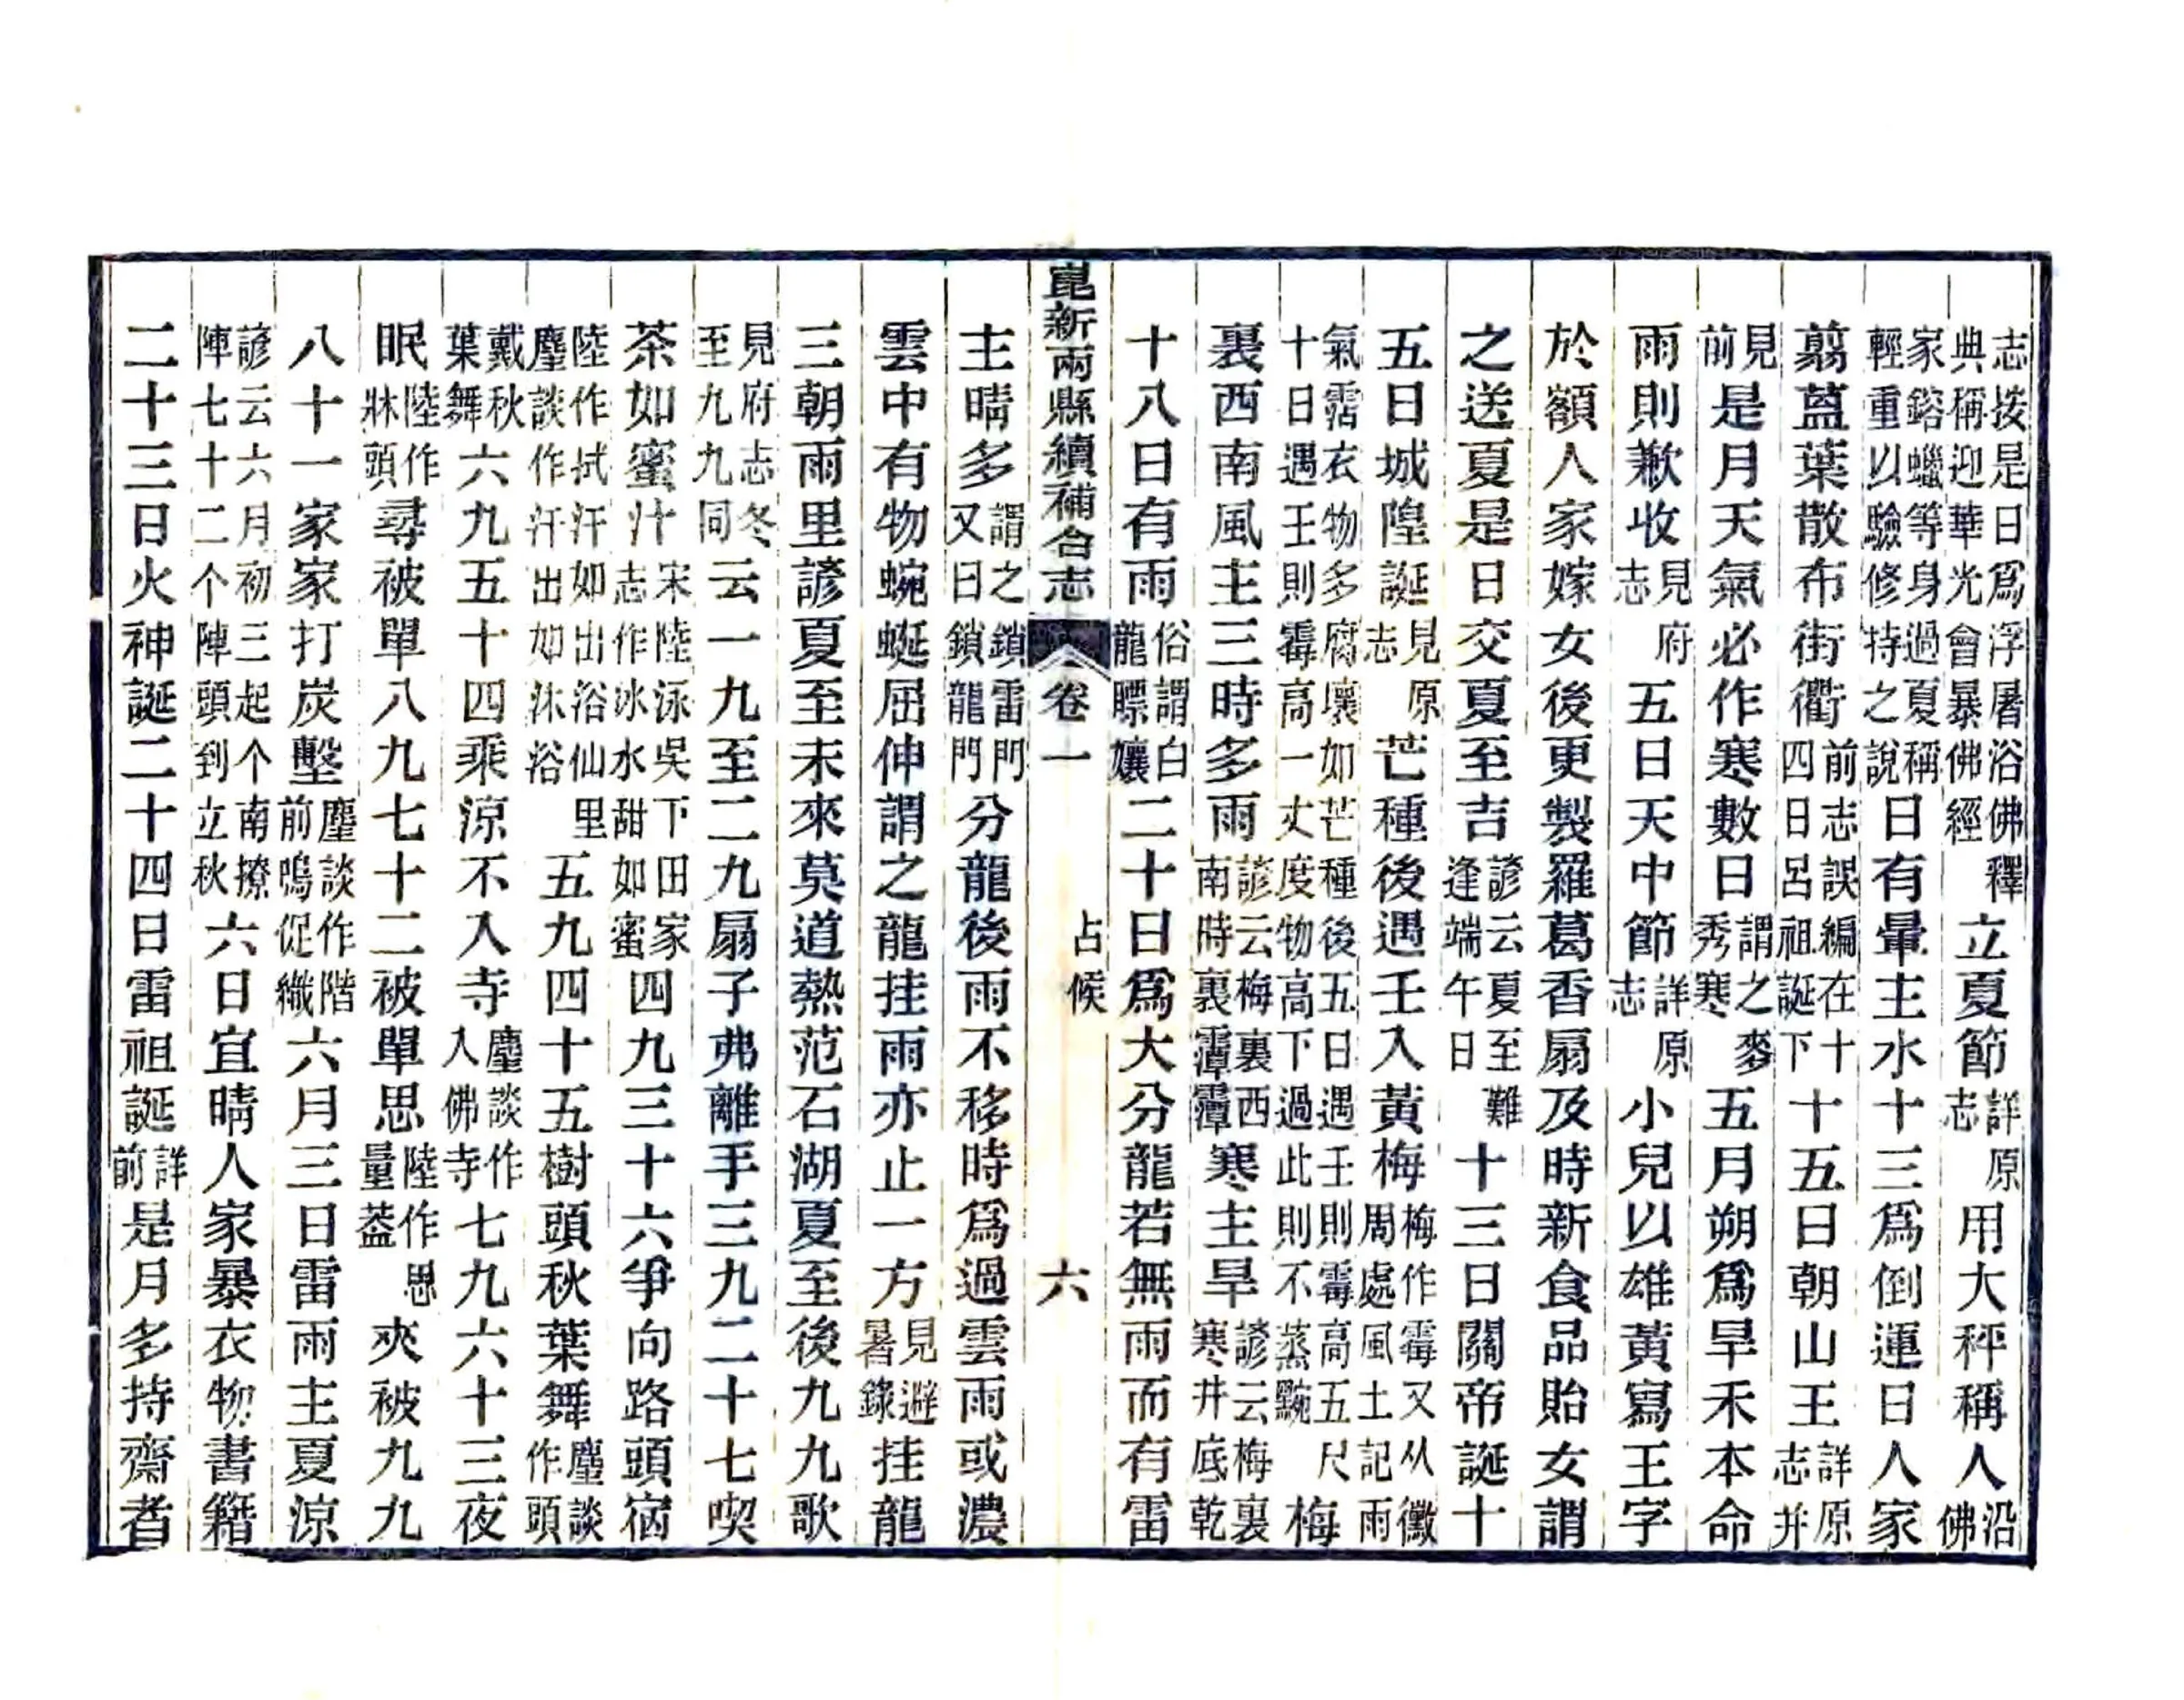 志按是日爲浮屠浴佛釋典稱迎華光會暴佛經立夏節詳原志用大秤稱人沿佛
家鎔蠟等身過夏稱輕重以驗修持之說日有暈主水十三爲倒運日人家
翦葢葉散布街衢前志誤編在十四日呂祖誕下十五日朝山王詳原志并
見前是月天氣必作寒數日謂之麥秀寒五月朔爲旱禾本命
雨則歉收見府志五日天中節詳原志小兒以雄黃寫王字
於額人家嫁女後更製羅葛香扇及時新食品貽女謂
之送夏是日交夏至吉諺云夏至難逢端午日十三日關帝誕十
五日城隍誕見原志芒種後遇壬入黃梅梅作霉又从黴周處風土記雨
氣霑衣物多腐壞如芒種後五日遇壬則霉高五尺十日遇壬則霉高一丈度物高下過此則不蒸黦梅
裏西南風主三時多雨諺云梅裏西南時裏潭潭寒主旱諺云梅裏寒井底乾
十八日有雨俗謂白龍瞟孃二十日爲大分龍若無雨而有雷
崑新兩縣續補合志 卷一 占候 六
主晴多謂之鎖雷門又曰鎖龍門分龍後雨不移時爲過雲雨或濃
雲中有物蜿蜒屈伸謂之龍挂雨亦止一方見避暑錄挂龍
三朝雨里諺夏至未來莫道熱范石湖夏至後九九歌
見府志冬至九九同云一九至二九扇子弗離手三九二十七喫
茶如蜜汁宋陸泳吳下田家志作冰水甜如蜜四九三十六爭向路頭宿
陸作拭汗如出浴仙里麈談作汗出如沐浴五九四十五樹頭秋葉舞麈談作頭
戴秋葉舞六九五十四乘涼不入寺麈談作入佛寺七九六十三夜
眠陸作牀頭尋被單八九七十二被單思陸作思量葢夾被九九
八十一家家打炭墼麈談作階前鳴促織六月三日雷雨主夏涼
諺云六月初三起个南撩陣七十二个陣頭到立秋六日宜晴人家暴衣物書籍
二十三日火神誕二十四日雷祖誕詳前是月多持齋者